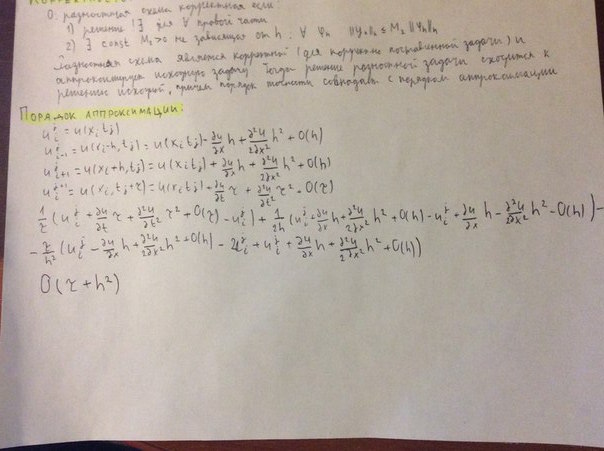 О. разностная схема корректная если:
1) решение ∃! для ∀ правой части
2) ∃ const M₂>0 не зависящая от h: ∀ φₙ ‖yₙ‖ₙ ≤ M₂ ‖φₙ‖ₙ
Разностная схема является корректной (для поставленной задачи) и
аппроксимирует исходную задачу. Тогда решение разностной задачи сходится к
решению исходной, причем порядок точности совпадает с порядком аппроксимации
ПОРЯДОК АППРОКСИМАЦИИ:
uᵢʲ = u(xᵢ tⱼ)
uᵢ₋₁ʲ = u(xᵢ-h, tⱼ) = u(xᵢ tⱼ) - ∂u/∂x h + ∂²u/2∂x² h² + O(h)
uᵢ₊₁ʲ = u(xᵢ+h, tⱼ) = u(xᵢ tⱼ) + ∂u/∂x h + ∂²u/2∂x² h² + O(h)
uᵢʲ⁺¹ = u(xᵢ, tⱼ+τ) = u(xᵢ tⱼ) + ∂u/∂t τ + ∂²u/2∂t² τ² + O(τ)
1/τ (uᵢʲ + ∂u/∂t τ + ∂²u/2∂t² τ² + O(τ) - uᵢʲ) + 1/2h (uᵢʲ + ∂u/∂x h + ∂²u/2∂x² h² + O(h) - uᵢʲ + ∂u/∂x h - ∂²u/2∂x² h² - O(h)) -
- τ/h² (uᵢʲ - ∂u/∂x h + ∂²u/2∂x² h² + O(h) - 2uᵢʲ + uᵢʲ + ∂u/∂x h + ∂²u/2∂x² h² + O(h))
O(τ + h²)